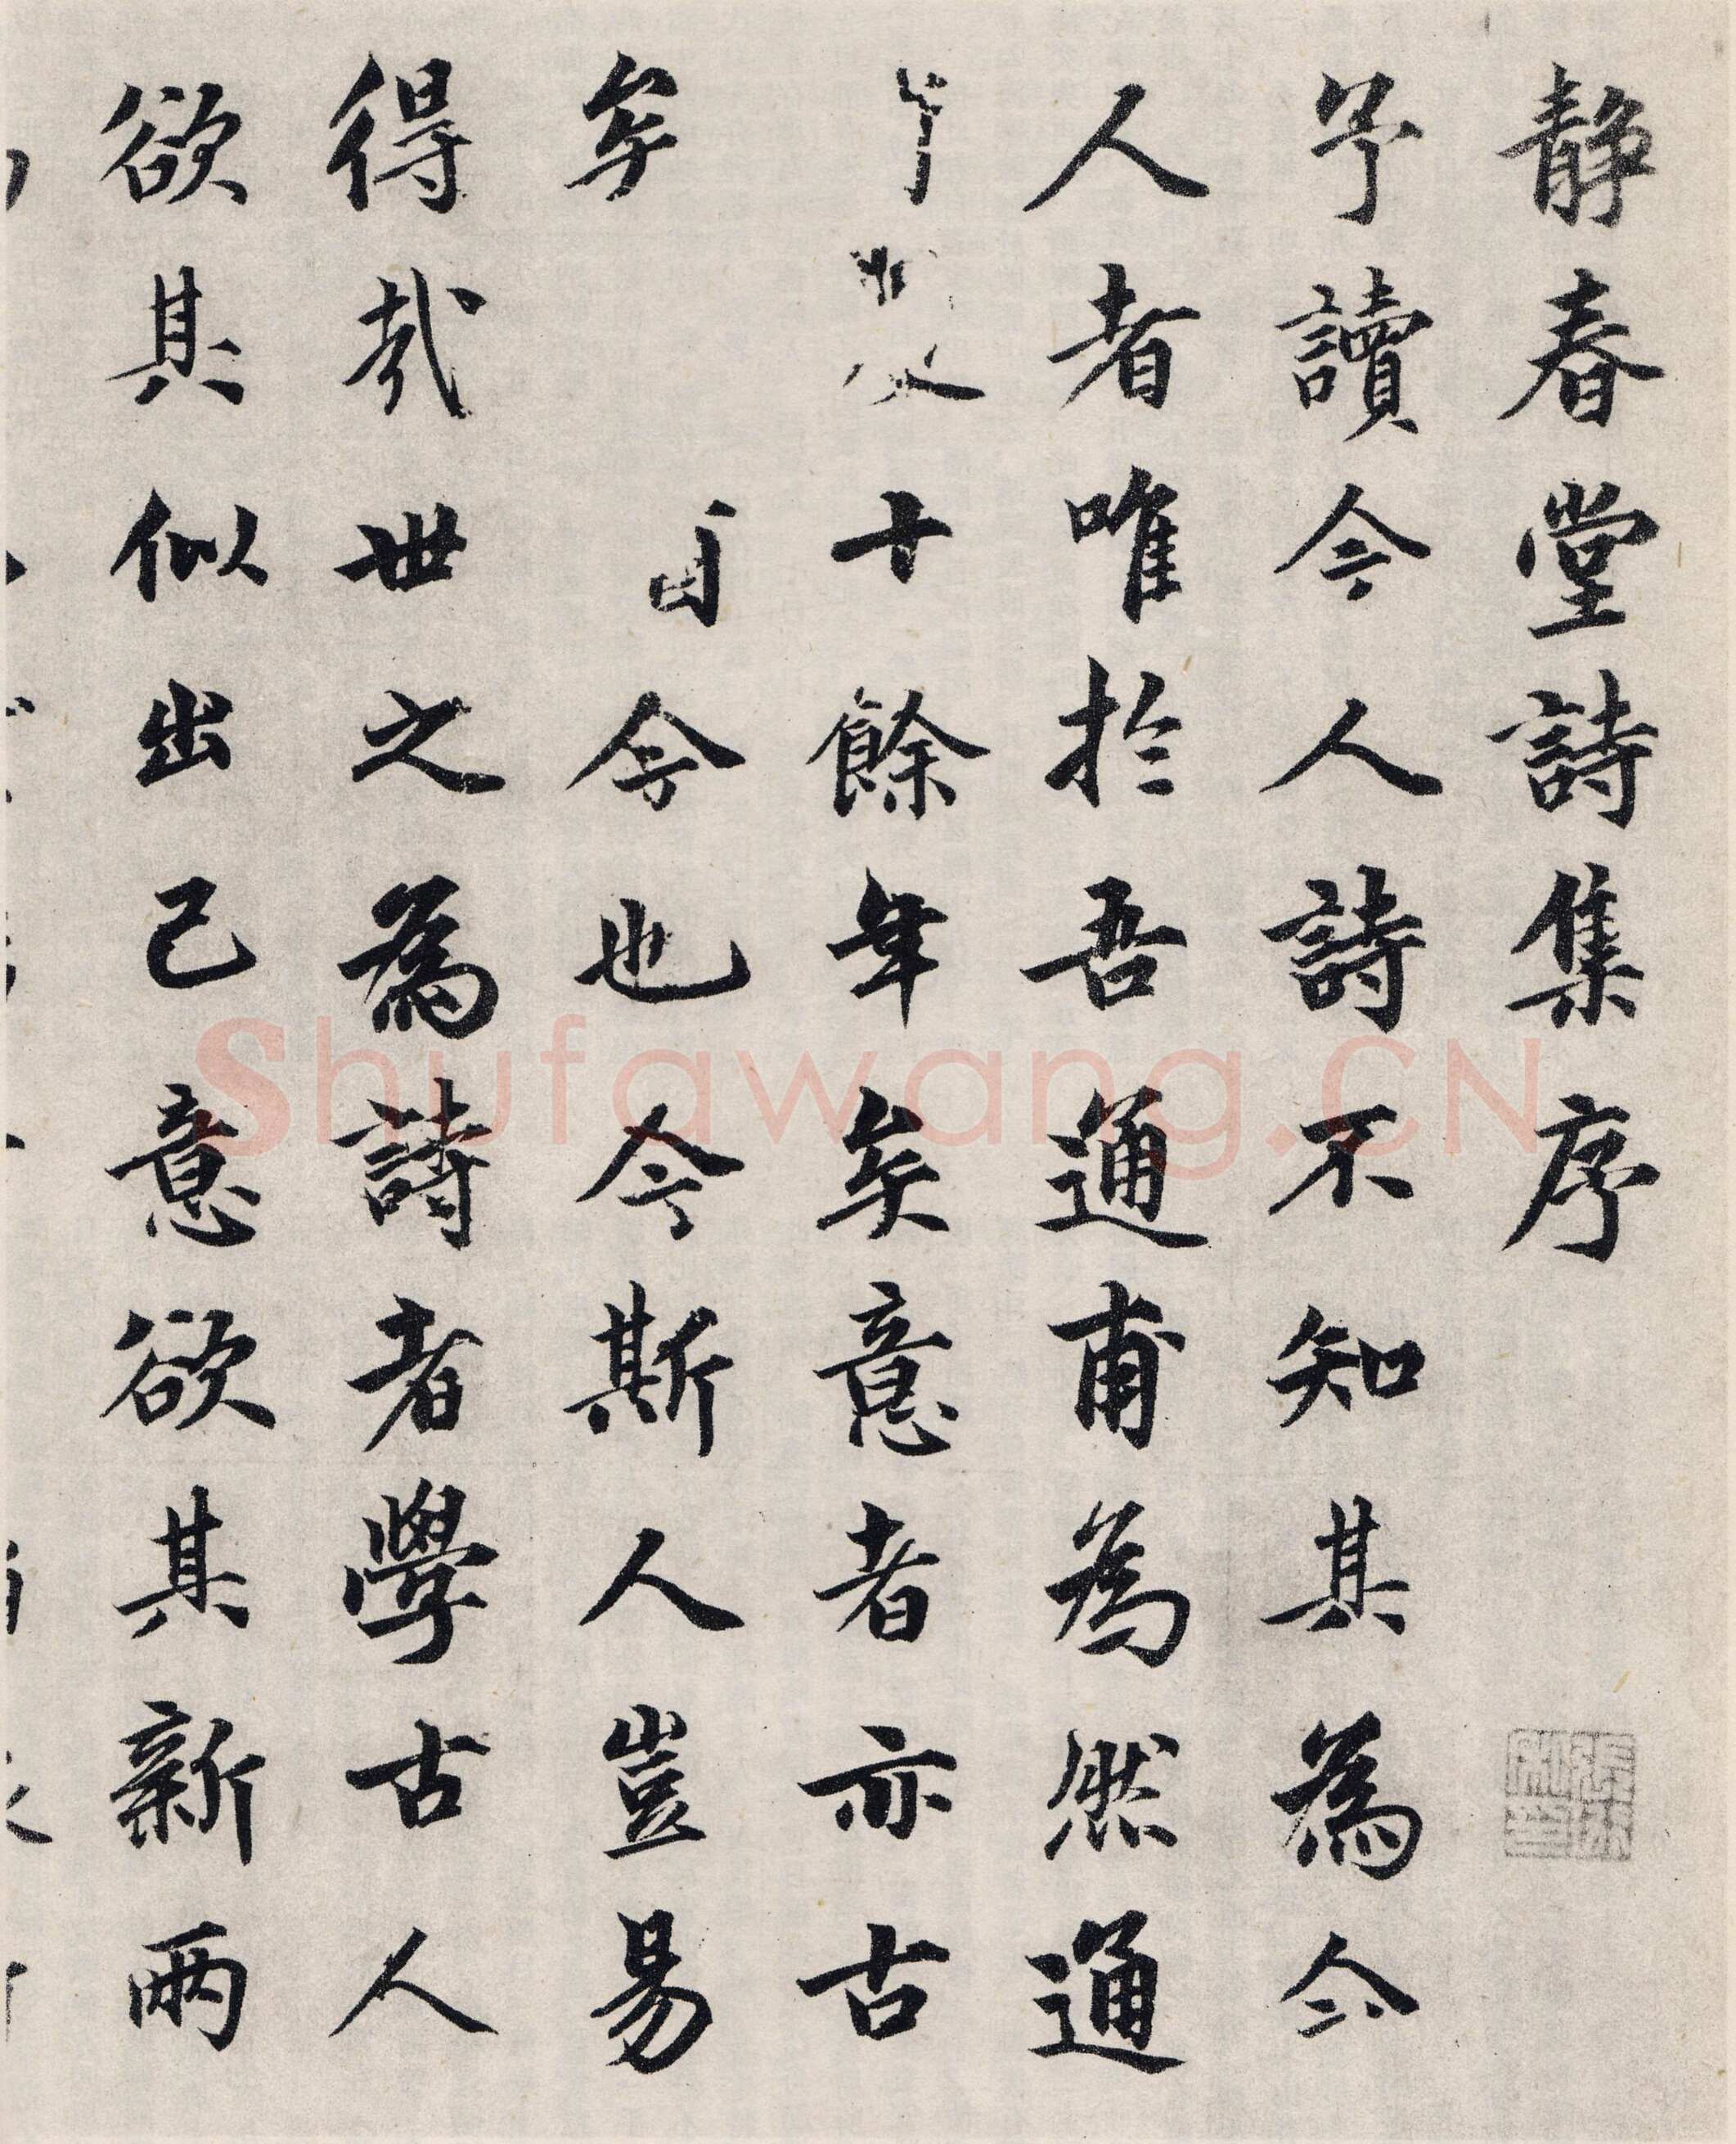 静春堂詩集序
予讀今人詩不知其為今
人者唯於吾通甫為然通
十餘年矣意者亦古
矣今也今斯人豈易
得哉世之為詩者學古人
欲其似出己意欲其新兩
Shufawang.CN